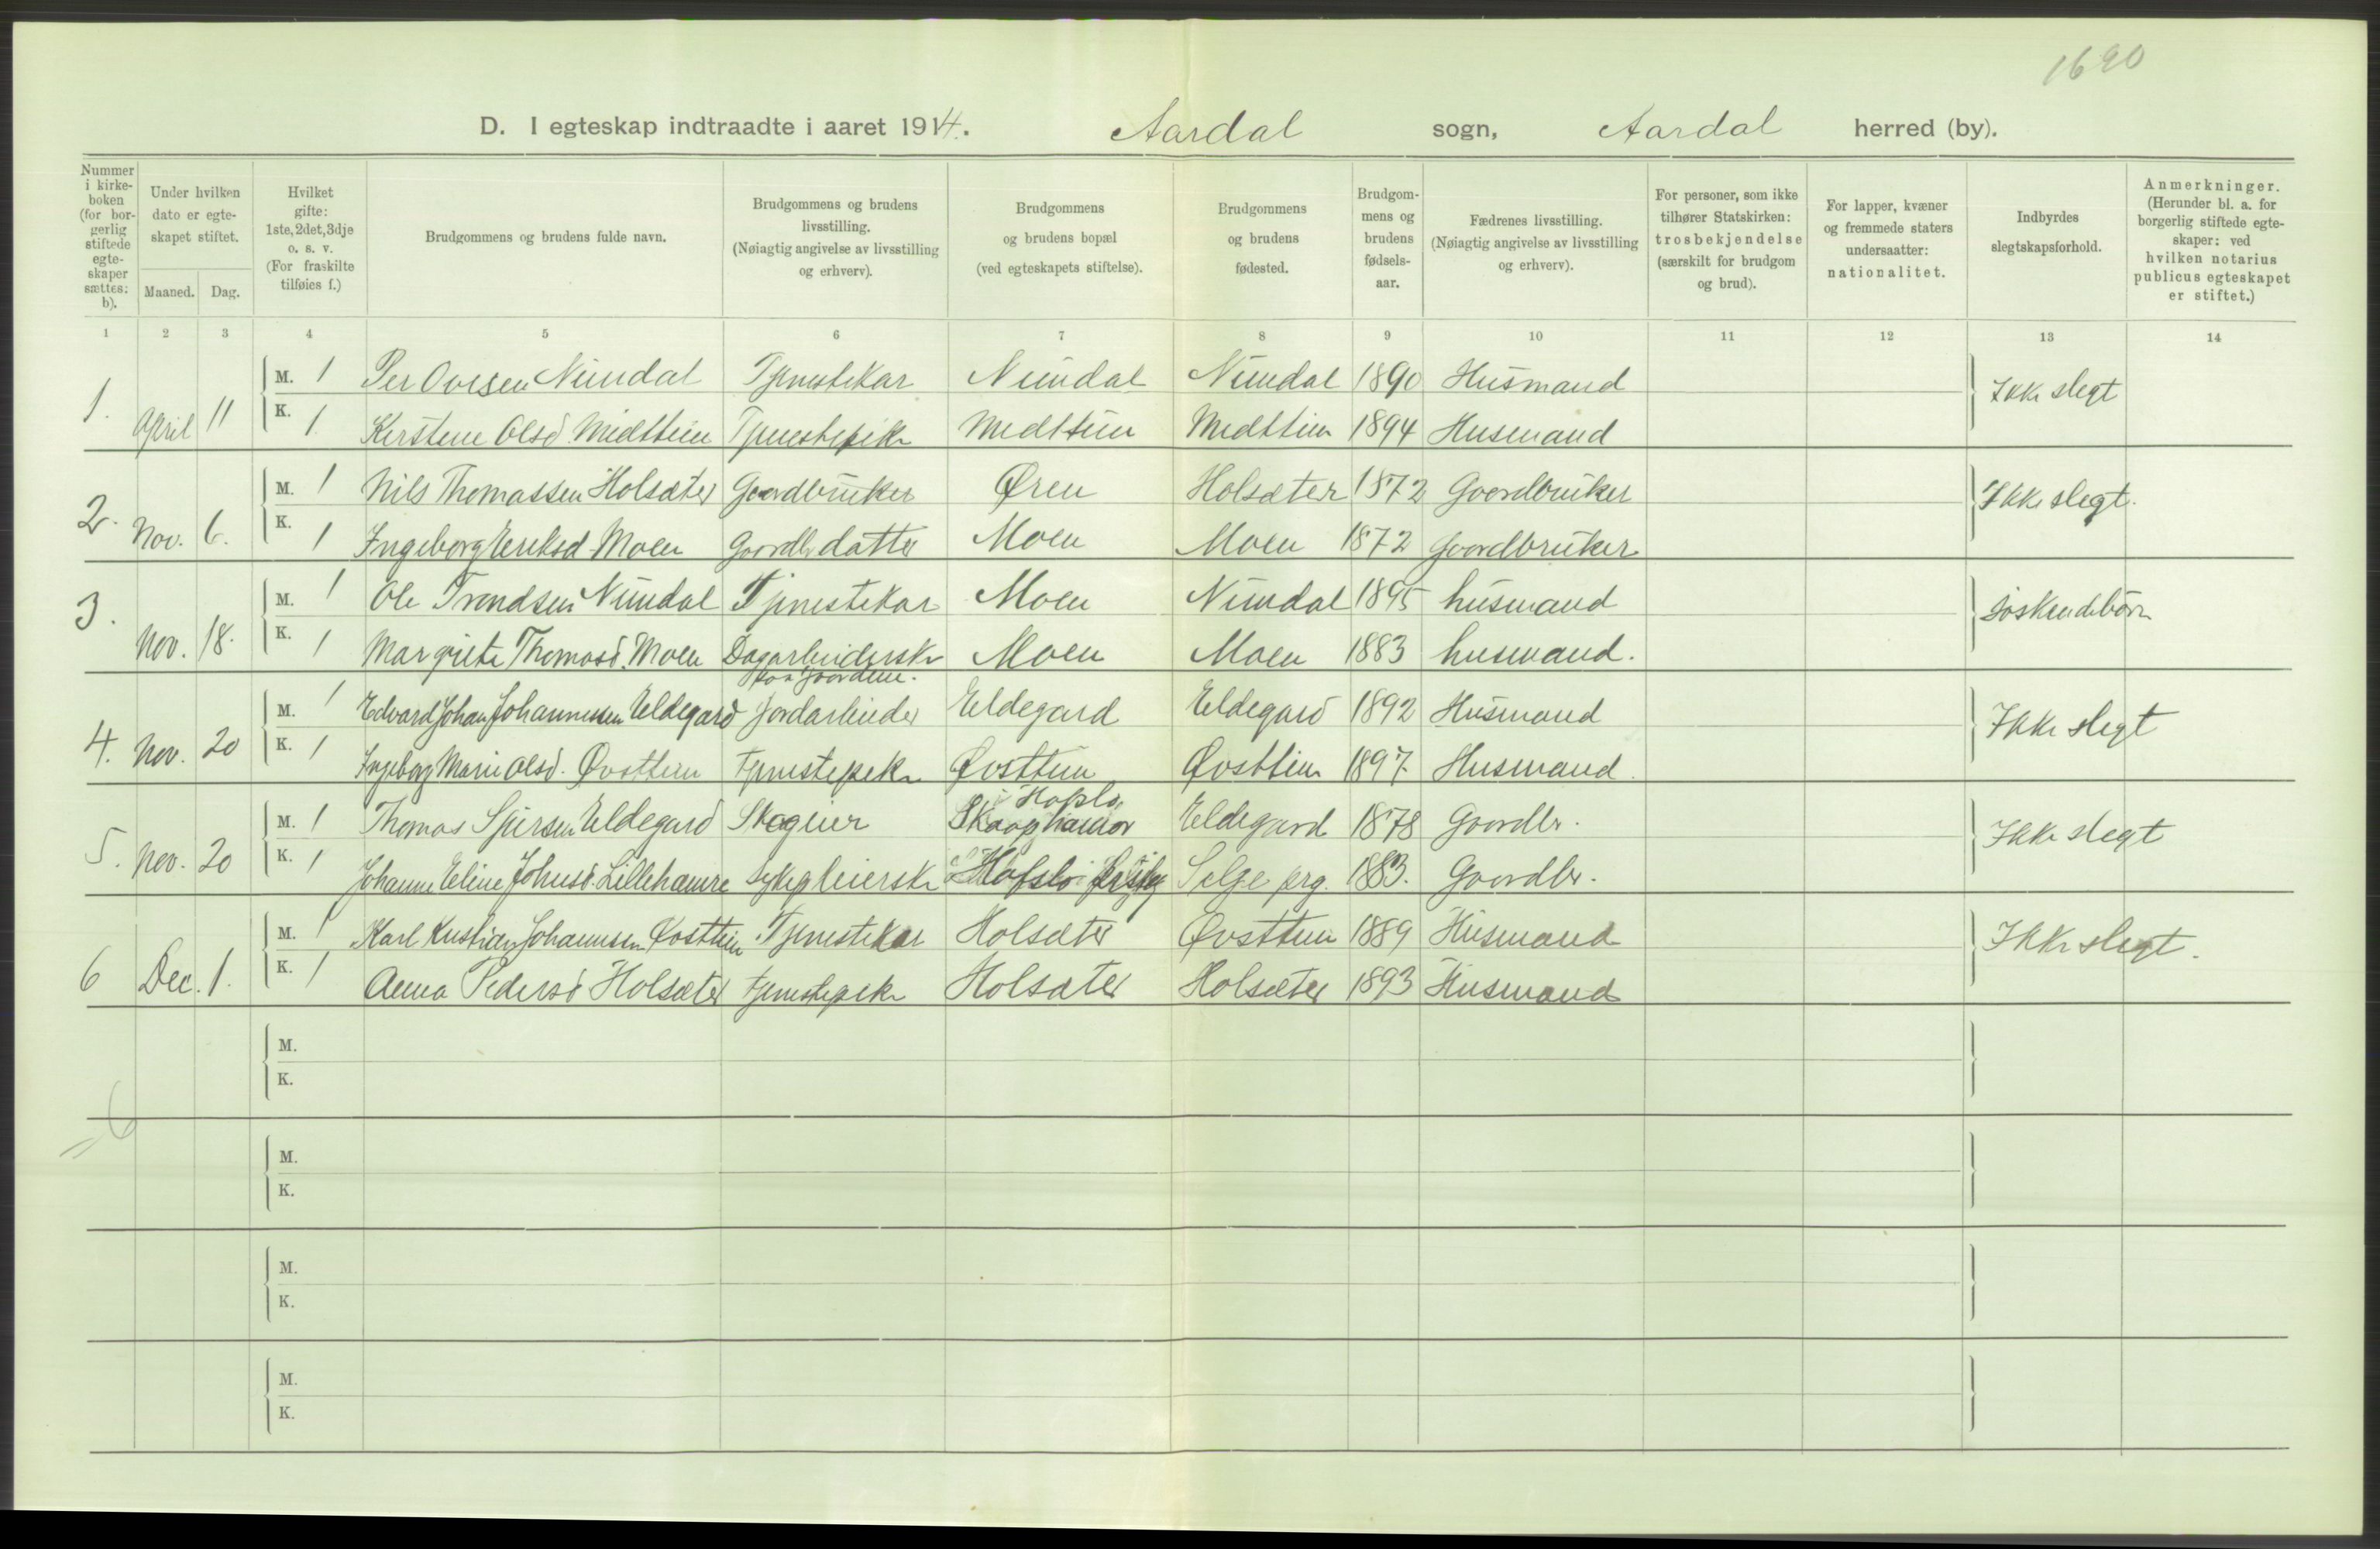 1690
D. I egteskap indtraadte i aaret 1914. Aardal sogn, Aardal herred (by).
Nummer i kirkeboken (for borgerlig stiftede egteskaper sættes: b).
Under hvilken dato er egteskapet stiftet.
Maaned. Dag.
Hvilket gifte: 1ste, 2det, 3dje o. s. v. (For fraskilte tilføies f.)
Brudgommens og brudens fulde navn.
Brudgommens og brudens livsstilling. (Nøiagtig angivelse av livsstilling og erhverv).
Brudgommens og brudens bopæl (ved egteskapets stiftelse).
Brudgommens og brudens fødested.
Brudgommens og brudens fødselsaar.
Fædrenes livsstilling. (Nøiagtig angivelse av livsstilling og erhverv).
For personer, som ikke tilhører Statskirken: trosbekjendelse (særskilt for brudgom og brud).
For lapper, kvæner og fremmede staters undersaatter: nationalitet.
Indbyrdes slegtskapsforhold.
Anmerkninger. (Herunder bl. a. for borgerlig stiftede egteskaper: ved hvilken notarius publicus egteskapet er stiftet.)
1 2 3 4 5 6 7 8 9 10 11 12 13 14
M. 1 Per Ovesen Nundal Tjenestekar Nundal Nundal 1890 Husmand
1. April 11 K. 1 Kirstene Olsd. Midttun Tjenestepike Midttun Midttun 1894 Husmand Ikke slegt
M. 1 Nils Thomassen Holsæter Gaardbruker Øren Holsæter 1872 Gaardbruker
2. Nov. 6. K. 1 Ingeborg Eriksd. Moen Gaardb. datter Moen Moen 1872 Gaardbruker Ikke slegt.
M. 1 Ole Trondsen Nundal Tjenestekar Moen Nundal 1895 husmand
3. Nov. 18. K. 1 Margrete Thomasd. Moen Dagarbeiderske Moen Moen 1883 husmand. Søskendebørn
paa gaardene.
M. 1 Edvard Johan Johannessen Eldegard Jordarbeider Eldegard Eldegard 1892 Husmand
4. Nov. 20 K. 1 Ingeborg Marie Olsd. Øvsttun Tjenestepike Øvsttun Øvsttun 1897 Husmand. Ikke slegt
i Hafslo
M. 1 Thomas Sjursen Eldegard Skogeier Eldegard 1878 Gaardbr.
5. Nov. 20 K. 1 Johanne Eline Johnsd. Lillehamre Sykepleierske Hafslo Selje prg. 1883. Gaardbr. Ikke slegt
M. 1 Karl Kristian Johannesen Øvsttun Tjenestekar Holsæter Øvsttun 1889 Husmand
6 Dec. 1. K. 1 Anna Pedersd. Holsæter Tjenestepike Holsæter Holsæter 1893 Husmand Ikke slegt.
M.
K.
= 6
M.
K.
M.
K.
M.
K.